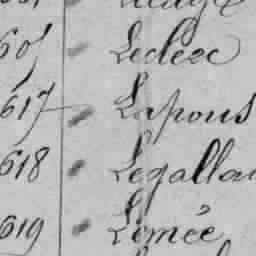 605 Leclerc
617 Lapous
618 Legallai
619 Lemée